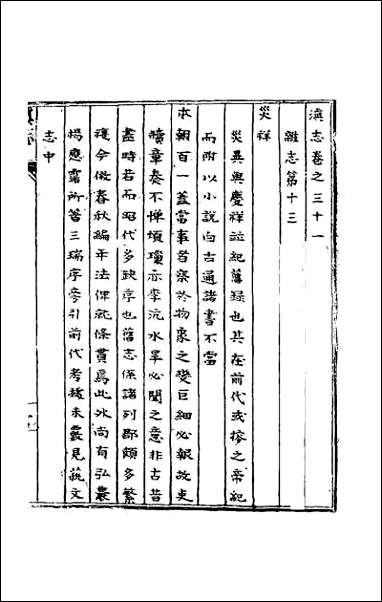 滇志卷之三十一
雜志第十三
災祥
災異與慶祥並紀舊録也其在前代或摭之帝紀
而附以小說白古通諸書不啻
本朝百一蓋當事者察於物象之變巨細必報故吏
牘章奏不憚瑣瓊亦李沆水旱必聞之意非古昔
盡時若而昭代多缺序也舊志條諸列郡頗多繁
複今倣春秋編年法俾就條貫焉此外尚有弘農
楊應霈所著三瑞序旁引前代考據未覈見藝文
志中